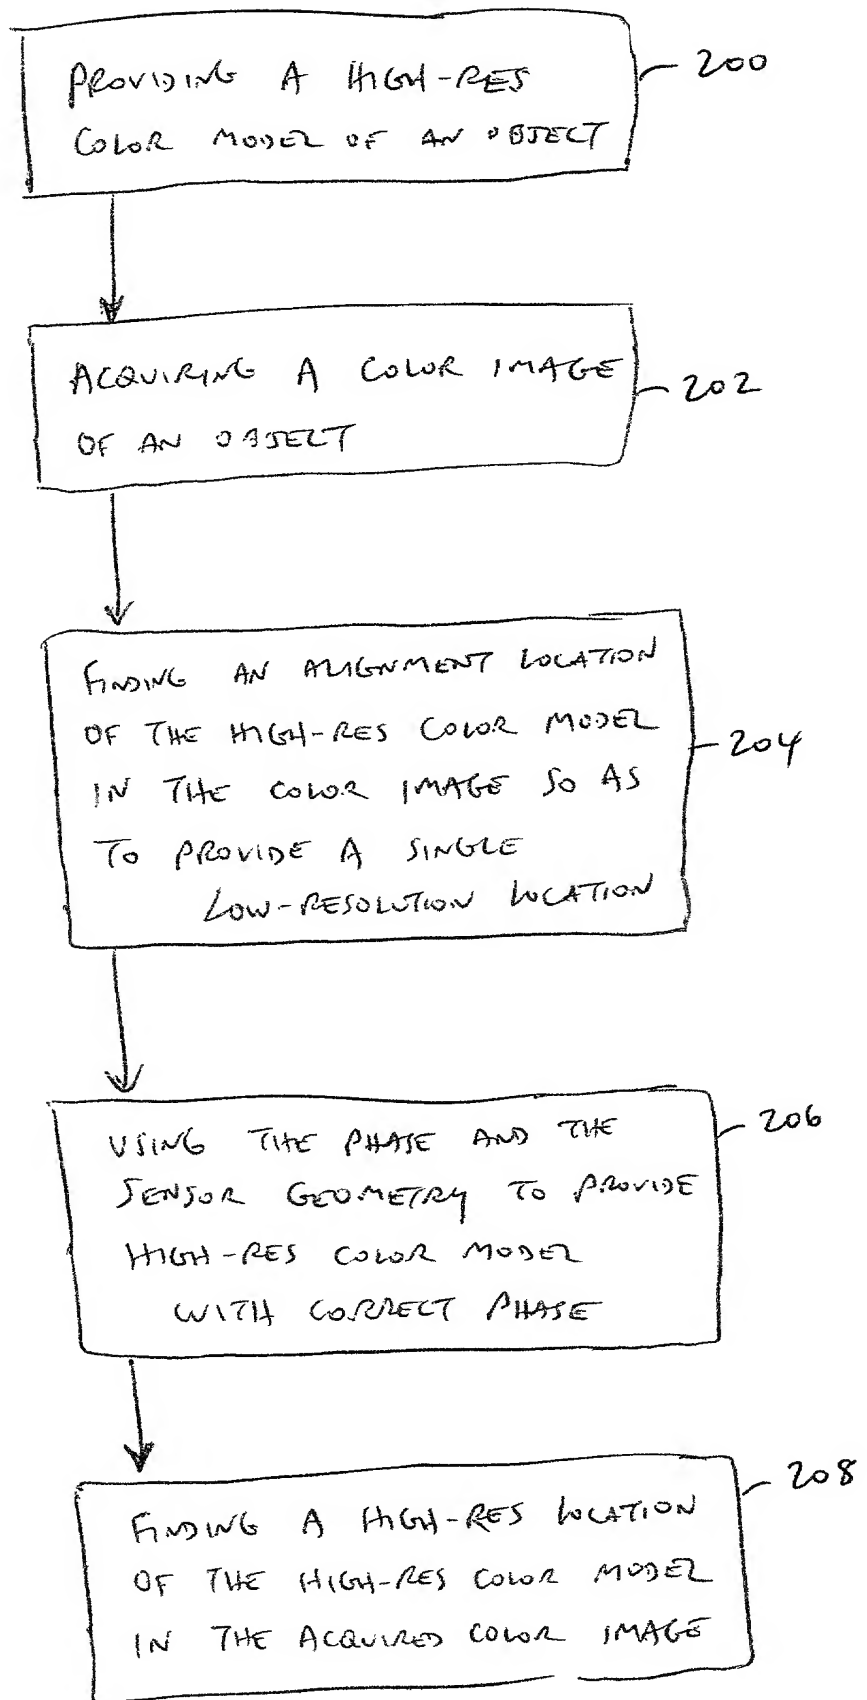 PROVIDING A HIGH-RES
200
COLOR MODEL OF AN OBJECT
ACQUIRING A COLOR IMAGE
202
OF AN OBJECT
FINDING AN ALIGNMENT LOCATION
OF THE HIGH-RES COLOR MODEL
204
IN THE COLOR IMAGE SO AS
TO PROVIDE A SINGLE
LOW-RESOLUTION LOCATION
USING THE PHASE AND THE
206
SENSOR GEOMETRY TO PROVIDE
HIGH-RES COLOR MODEL
WITH CORRECT PHASE
208
FINDING A HIGH-RES LOCATION
OF THE HIGH-RES COLOR MODEL
IN THE ACQUIRED COLOR IMAGE